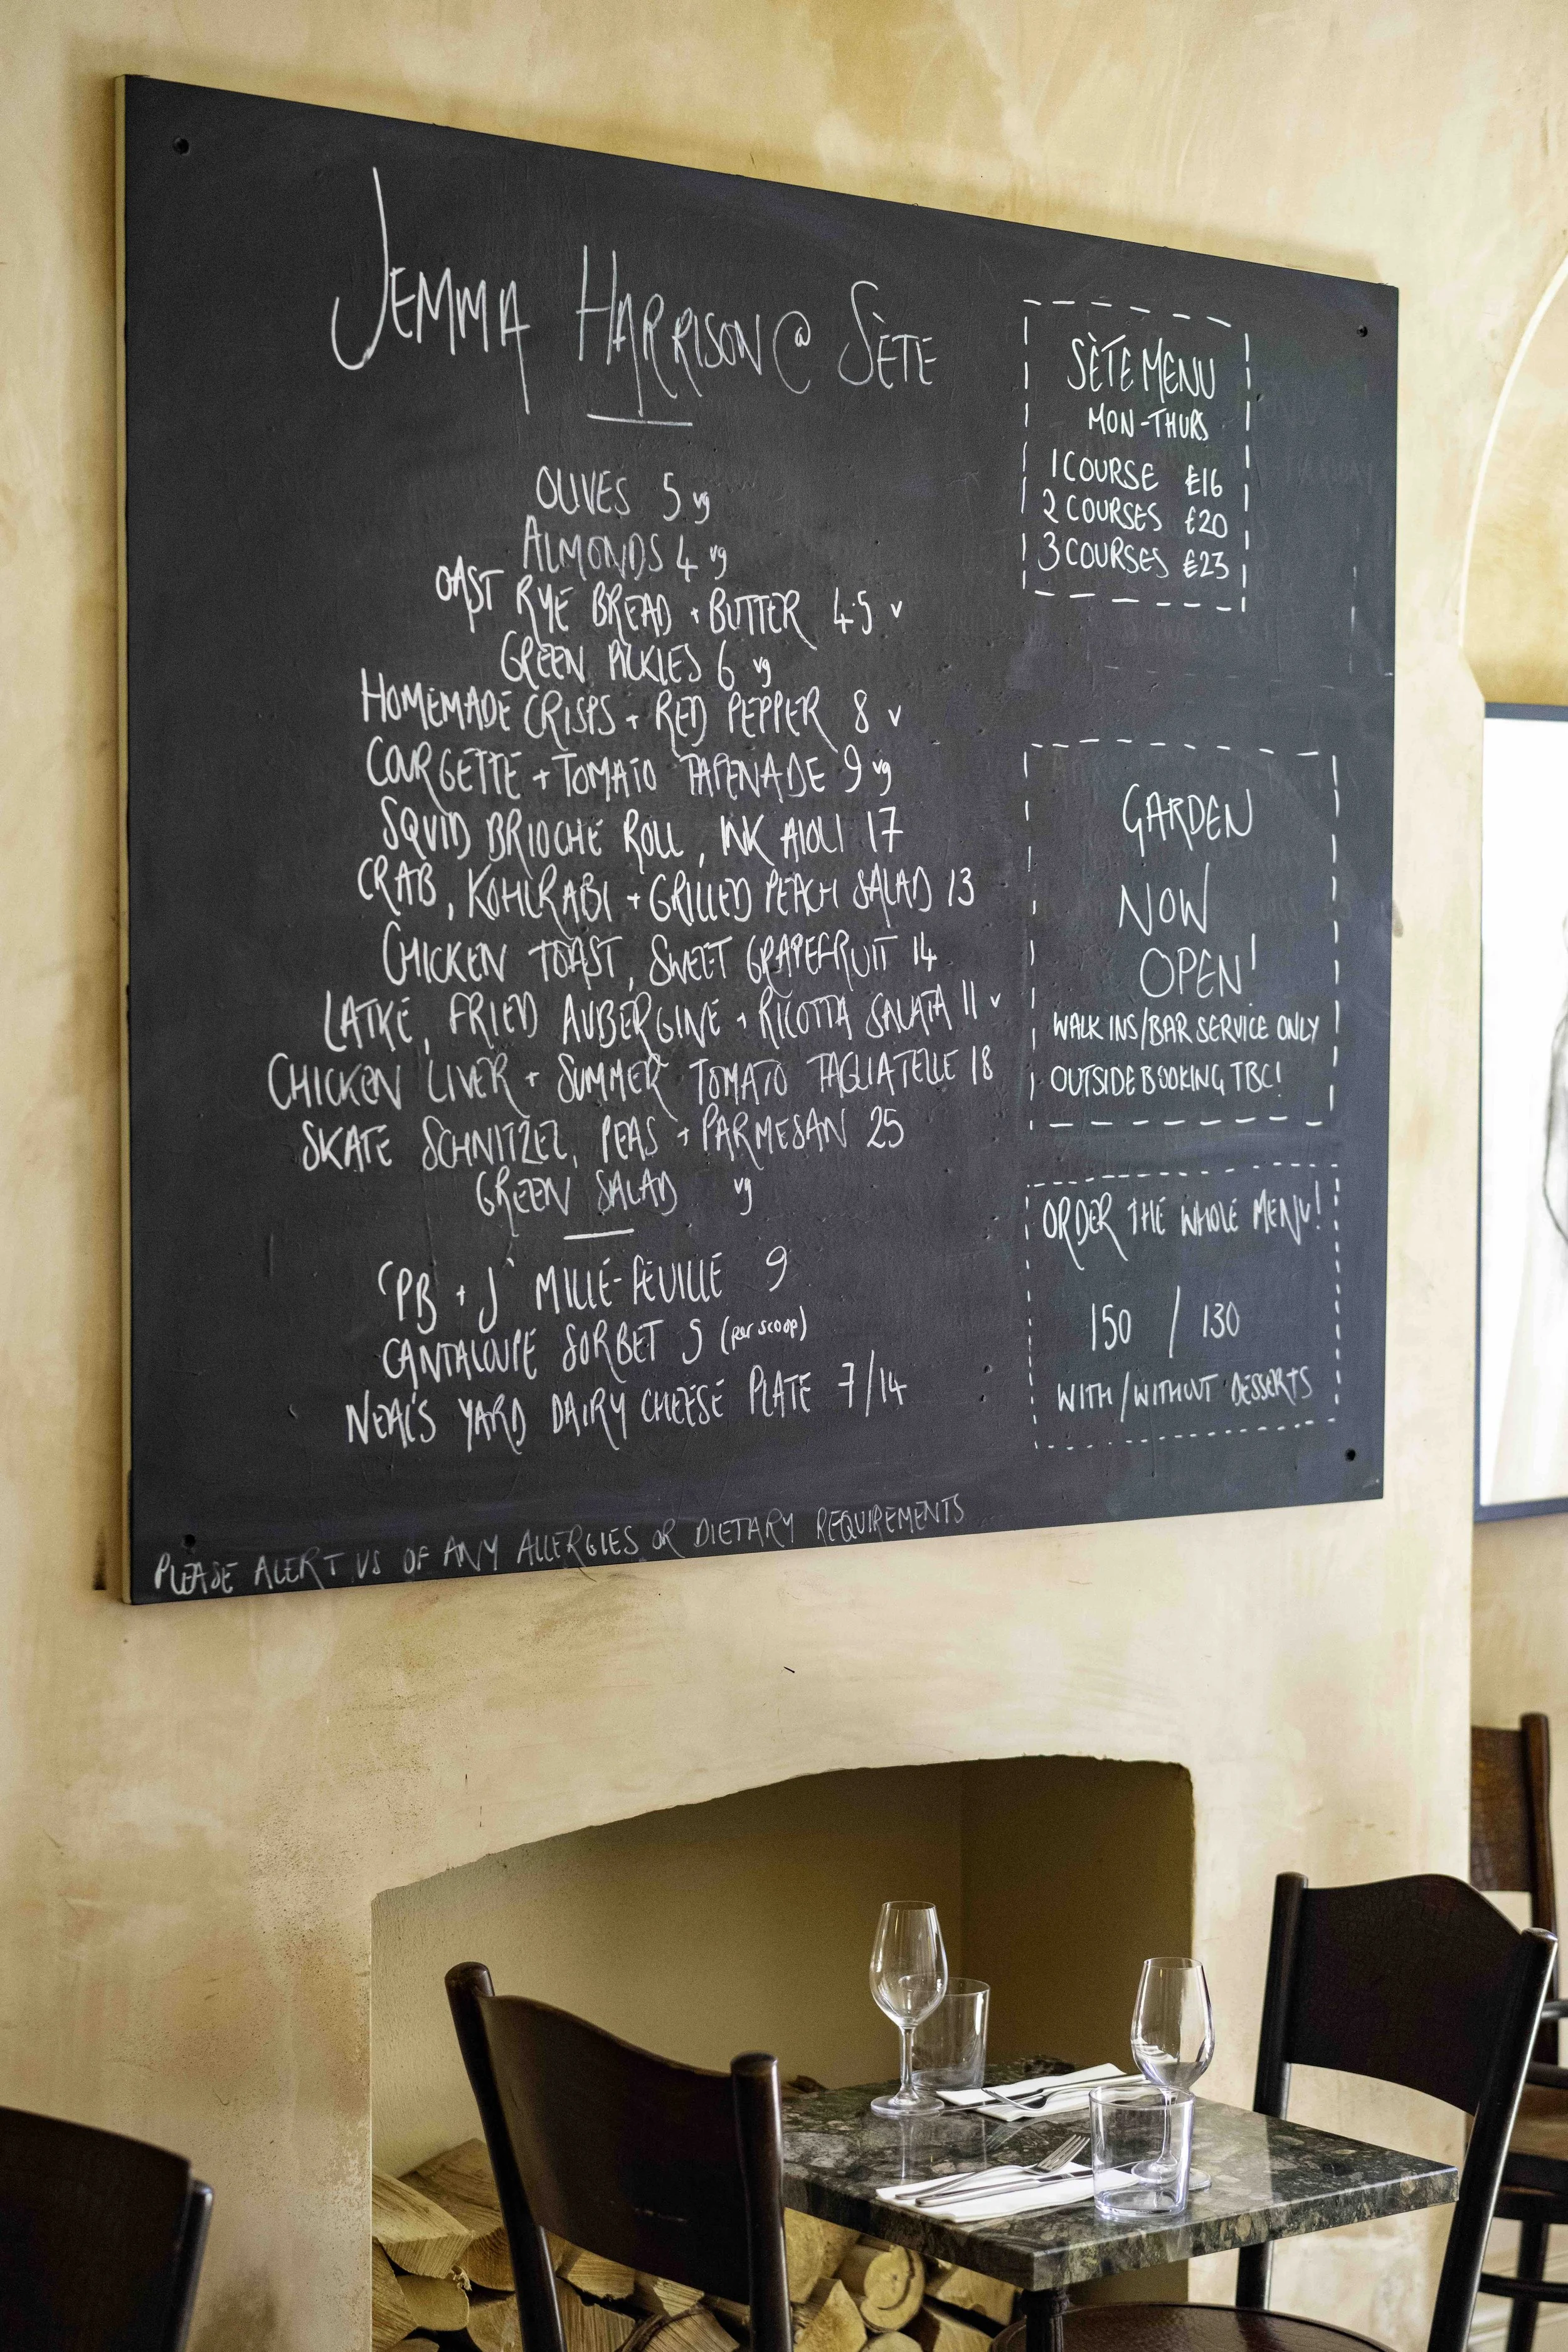 JEMMA HARRISON @ SÈTE
OLIVES 5 vg
ALMONDS 4 vg
OAST RYE BREAD + BUTTER 4.5 v
GREEN PICKLES 6 vg
HOMEMADE CRISPS + RED PEPPER 8 v
COURGETTE + TOMATO TAPENADE 9 vg
SQUID BRIOCHE ROLL, INK AIOLI 17
CRAB, KOHLRABI + GRILLED PEACH SALAD 13
CHICKEN TOAST, SWEET GRAPEFRUIT 14
LATKE, FRIED AUBERGINE + RICOTTA SALATA 11 v
CHICKEN LIVER + SUMMER TOMATO TAGLIATELLE 18
SKATE SCHNITZEL, PEAS + PARMESAN 25
GREEN SALAD vg
'PB + J' MILLE-FEUILLE 9
CANTALOUPE SORBET 5 (per scoop)
NEAL'S YARD DAIRY CHEESE PLATE 7/14
PLEASE ALERT US OF ANY ALLERGIES OR DIETARY REQUIREMENTS
SÈTE MENU
MON-THURS
1 COURSE £16
2 COURSES £20
3 COURSES £23
GARDEN
NOW
OPEN!
WALK INS/BAR SERVICE ONLY
OUTSIDE BOOKING TBC!
ORDER THE WHOLE MENU!
150 / 130
WITH/WITHOUT DESSERTS